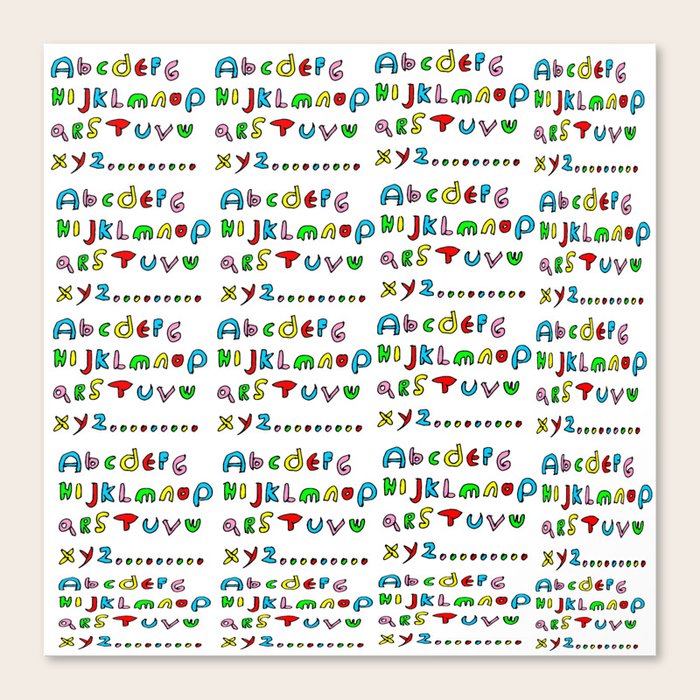 AbcdEFG AbcdEFG AbcdEFG AbcdEFG
HIJKLmnop HIJKLmnop HIJKLmnop HIJKLmnop
qRSTUVW qRSTUVW qRSTUVW qRSTUVW
xyz......... xyz......... xyz......... xyz.........
AbcdEFG AbcdEFG AbcdEFG AbcdEFG
HIJKLmnop HIJKLmnop HIJKLmnop HIJKLmnop
qRSTUVW qRSTUVW qRSTUVW qRSTUVW
xyz......... xyz......... xyz......... xyz.........
AbcdEFG AbcdEFG AbcdEFG AbcdEFG
HIJKLmnop HIJKLmnop HIJKLmnop HIJKLmnop
qRSTUVW qRSTUVW qRSTUVW qRSTUVW
xyz......... xyz......... xyz......... xyz.........
AbcdEFG AbcdEFG AbcdEFG AbcdEFG
HIJKLmnop HIJKLmnop HIJKLmnop HIJKLmnop
qRSTUVW qRSTUVW qRSTUVW qRSTUVW
xyz......... xyz......... xyz......... xyz.........
AbcdEFG AbcdEFG AbcdEFG AbcdEFG
HIJKLmnop HIJKLmnop HIJKLmnop HIJKLmnop
qRSTUVW qRSTUVW qRSTUVW qRSTUVW
xyz......... xyz......... xyz......... xyz.........